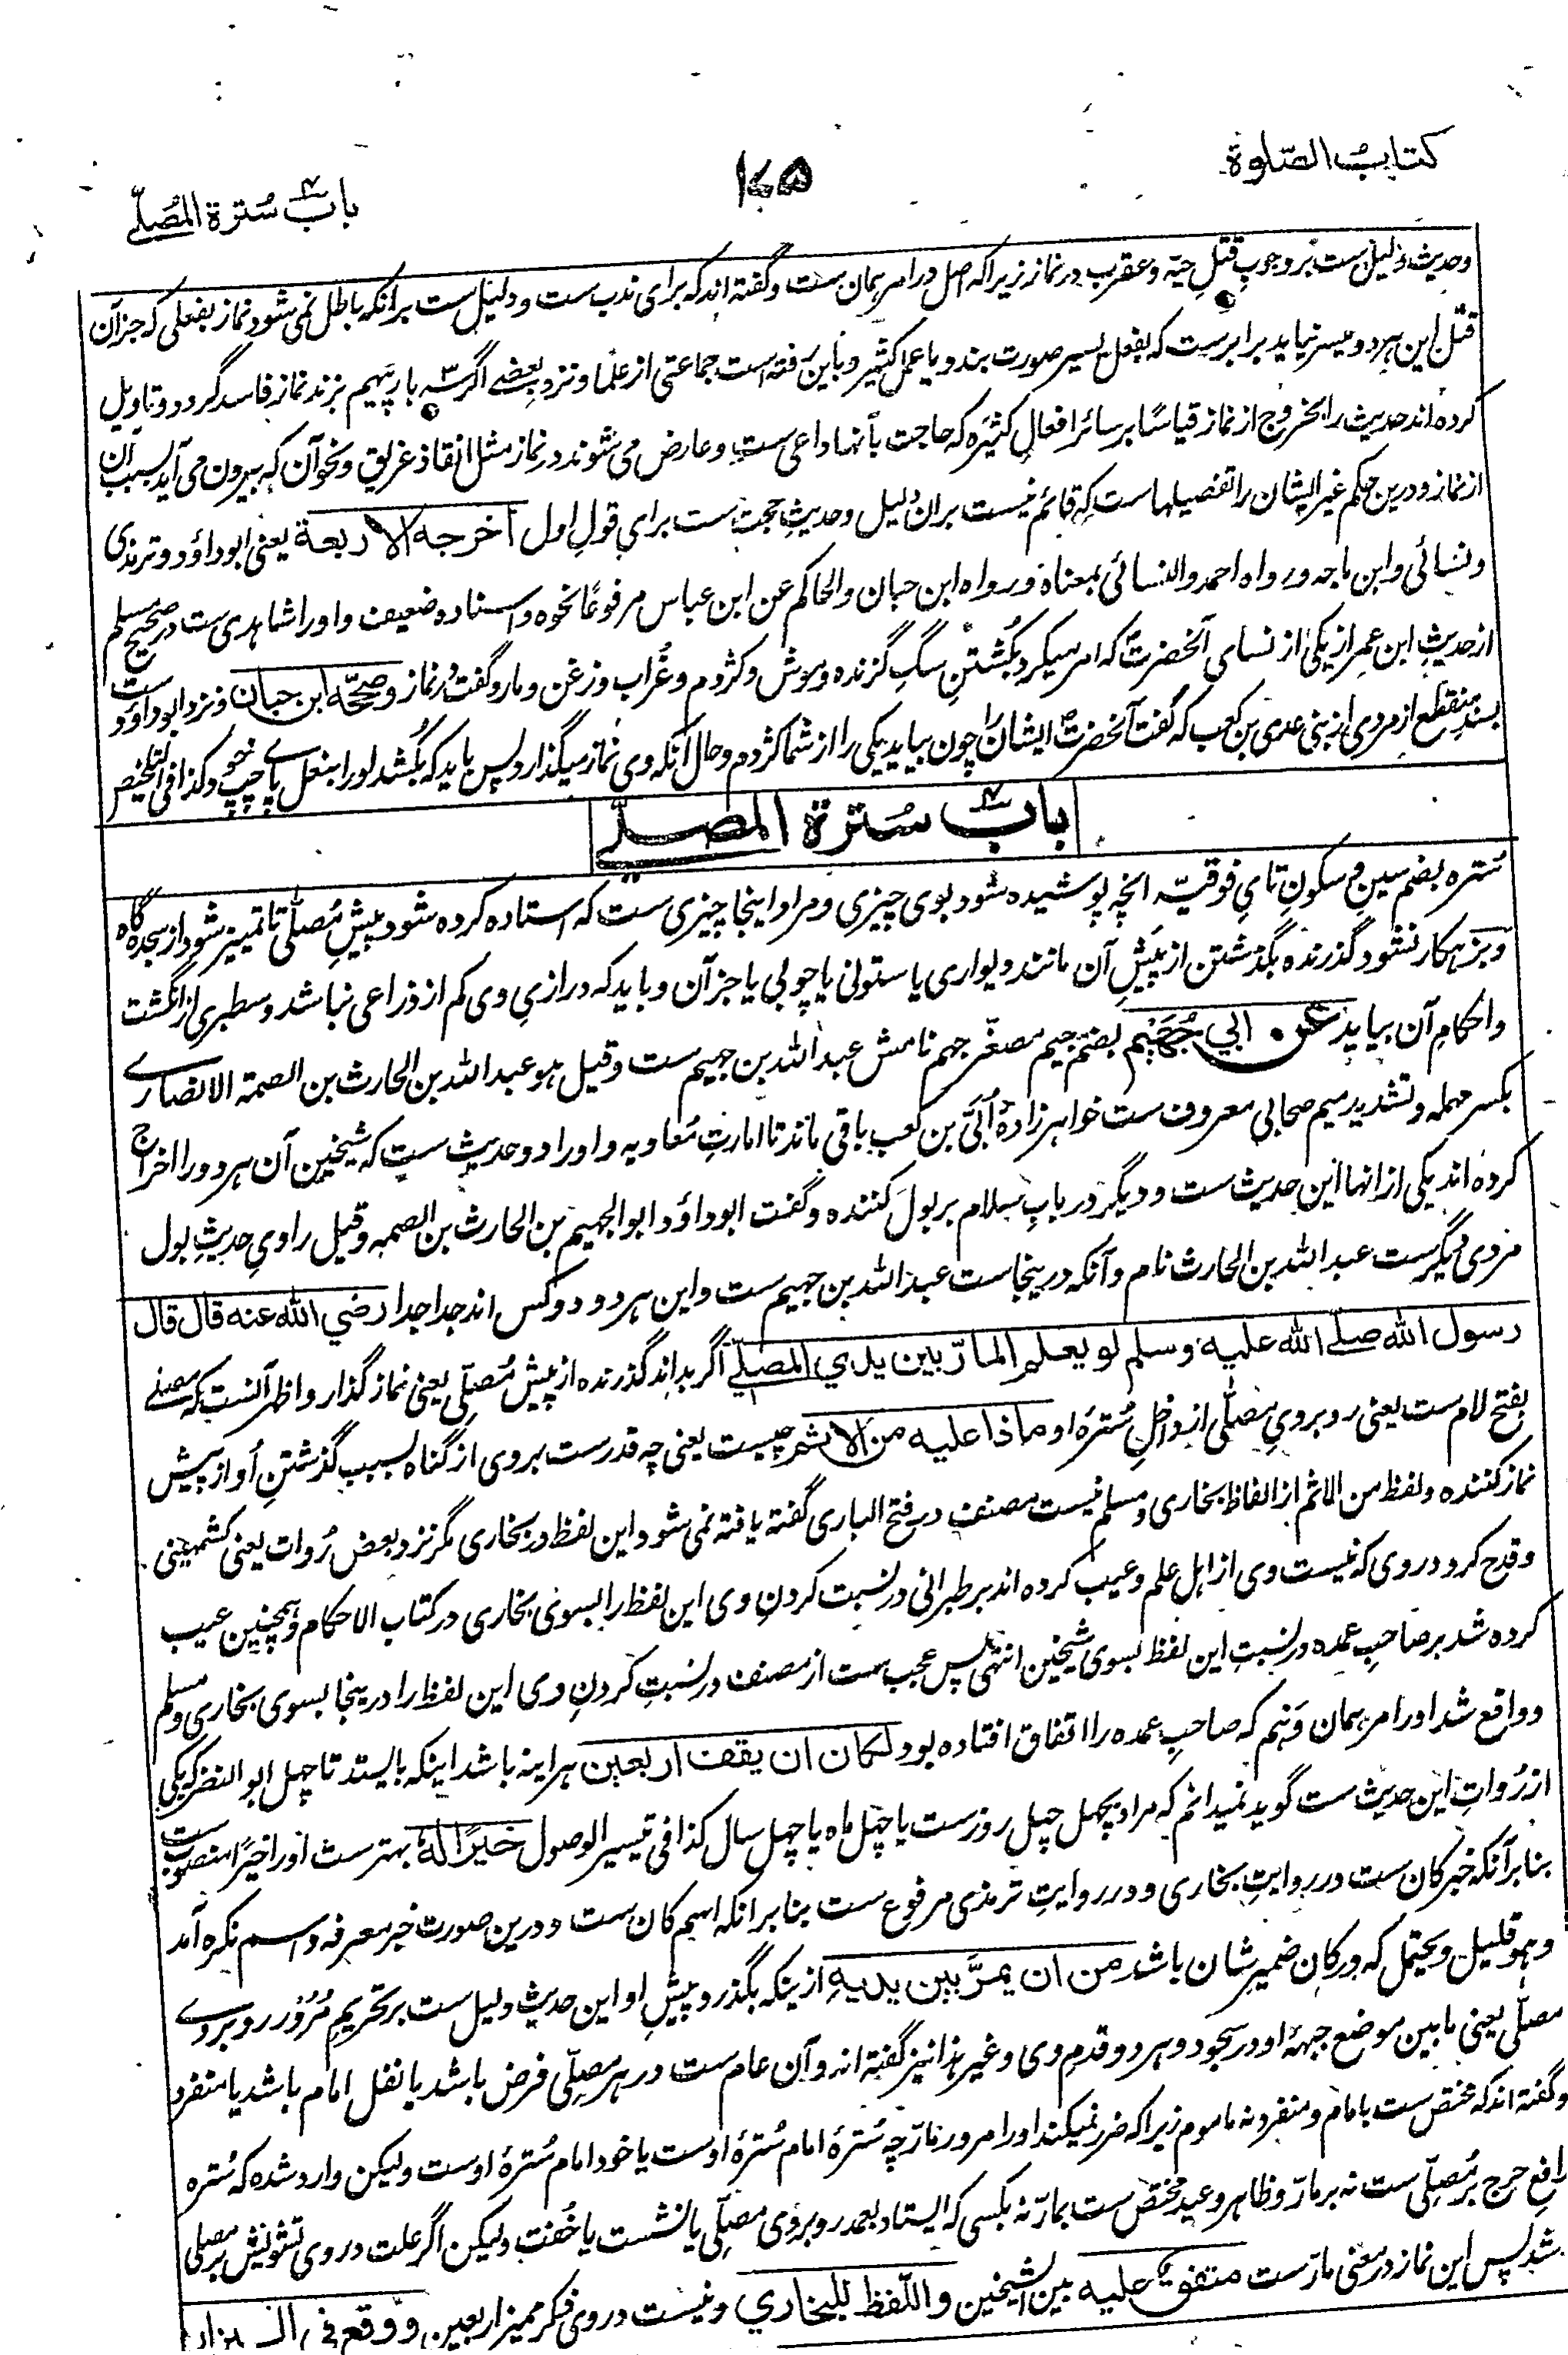 کتاب الصلوة
۱۷۵
باب سترة المصلے
وحدیث دلیل ست بر وجوب قتل حیه و عقرب در نماز زیرا که اصل در امر همان ست و گفته اند که برای ندب ست و دلیل ست برانکه باطل نمی شود نماز بفعلی که جز آن
قتل این هر دو میسر نیاید برابرست که بفعل یسیر صورت بندد یا عمل کثیر و باین رفته است جماعتی از علما و نزد بعضے اگر سه بار پیهم بزند نماز فاسد گردد و تاویل
کرده اند حدیث را بخروج از نماز قیاسًا بر سائر افعال کثیره که حاجت بآنها داعی ست و عارض می شوند در نماز مثل انقاذ غریق و نحو آن که بیرون می آید بسبب آن
از نماز و درین حکم غیر ایشان را تفصیلها است که قائم نیست بران دلیل و حدیث حجت ست برای قول اول اخرجه الاربعة یعنی ابوداؤد و ترمذی
و نسائی و ابن ماجه ورواه احمد والنسائی بمعناه ورواه ابن حبان والحاکم عن ابن عباس مرفوعًا نحوه واسناده ضعیف و او را شاهدی ست در صحیح مسلم
از حدیث ابن عمر از یکی از نسای آنحضرت که امر میکرد بکُشتنِ سگِ گزنده و موش و کژدم و غُراب و زغن و مار و گفت در نماز وصححه ابن حبان و نزد ابوداؤد ست
بسندِ منقطع از مردی از بنی عدی بن کعب که گفت آنحضرت ایشان را چون بیاید یکی را از شما کژدم و حال آنکه وی نماز میگذارد پس باید که بکُشد او را بنعل پاے چپ نحوه و کذا فی التلخیص
باب سترة المصلے
سُتره بضم سین و سکونِ تایِ فوقیّه انچه پوشیده شود بوی چیزی و مراد اینجا چیزی ست که استاده کرده شود پیشِ مُصلّی تا تمییز شود از سجده گاه
و بزهکار نشود گذرنده بگذشتن از پیشِ آن مانند دیواری یا ستونی یا چوبی یا جز آن و باید که درازیِ وی کم از ذراعی نباشد و سطبری از انگشت
و احکامِ آن بیاید عن ابي جُهَيْم بضم جیم مصغّر جهم نامش عبدالله بن جهیم ست وقیل هو عبدالله بن الحارث بن الصمة الانصارے
بکسر مهمله و تشدید میم صحابی معروف ست خواهرزادهٔ اُبَیّ بن کعب باقی ماند تا امارتِ مُعاویه و او را دو حدیث ست که شیخین آن هر دو را اخراج
کرده اند یکی از انها این حدیث ست و دیگر در بابِ سلام بر بول کننده و گفت ابوداؤد ابوالجهیم بن الحارث بن الصمه وقیل راویِ حدیثِ بول
مردی دیگرست عبدالله بن الحارث نام و آنکه درینجاست عبدالله بن جهیم ست و این هر دو دو کس اند جدا جدا رضي الله عنه قال قال
رسول الله صلے الله عليه وسلم لو يعلم المارّ بين يدي المصلّے اگر بداند گذرنده از پیش مُصلّی یعنی نماز گذار و اظهر آنست که مصلے
بفتح لام ست یعنی روبرویِ مصلّی از داخلِ سُترهٔ او ماذا عليه من الاثم چیست یعنی چه قدرست بروی از گناه بسببِ گذشتنِ اُو از پیش
نماز کننده و لفظ من الاثم از الفاظ بخاری و مسلم نیست مصنف در فتح الباری گفته یافته نمی شود این لفظ در بخاری مگر نزد بعض رُوات یعنی کشمیهنی
وقدح کرد در وی که نیست وی از اهل علم و عیب کرده اند بر طبرانی در نسبت کردنِ وی این لفظ را بسوی بخاری در کتاب الاحکام و همچنین عیب
کرده شد بر صاحبِ عمده در نسبتِ این لفظ بسوی شیخین انتهٰی پس عجب ست از مصنف در نسبتِ کردنِ وی این لفظ را درینجا بسوی بخاری و مسلم
و واقع شد او را مر همان وَهم که صاحبِ عمده را اتفاق افتاده بود لكان ان يقف اربعين هر اینه باشد اینکه بایستد تا چهل ابوالنضر که یکی
از رُواتِ این حدیث ست گوید نمیدانم که مراد بچهل چهل روزست یا چهل ماه یا چهل سال کذا فی تیسیر الوصول خيرًا له بهترست او را خیرًا منصوب ست
بنابر آنکه خبر کان ست در روایتِ بخاری و در روایتِ ترمذی مرفوع ست بنابر انکه اسم کان ست و درین صورت خبر معرفه و اسم نکره آمد
وهو قلیل و یحتمل که در کان ضمیرِ شان باشد من ان يمرّ بين يديه ازینکه بگذرد پیشِ او این حدیث دلیل ست بر تحریمِ مُرُور روبروے
مصلّی یعنی مابین موضع جبههٔ او در سجود و هر دو قدمِ وی و غیر هذا نیز گفته اند و آن عام ست در هر مصلّی فرض باشد یا نفل امام باشد یا منفرد
و گفته اند که مختص ست بامام و منفرد نه ماموم زیرا که ضرر نمیکند او را مرور مارّ چه سُترهٔ امام سُترهٔ اوست یا خود امام سُترهٔ اوست ولیکن وارد شده که سُتره
رافعِ حرج بر مُصلّی ست نه بر مارّ و ظاهر وعید مختص ست بمارّ نه بکسی که ایستاد بعمد روبروی مصلّی یا نشست یا خُفت ولیکن اگر علت در وی تشویش بر مصلی
شد پس این نماز در معنی مارّ ست متفق عليه بین الشیخین واللّفظ للبخاري و نیست در وی ذکر ممیز اربعین ووقع في البزار